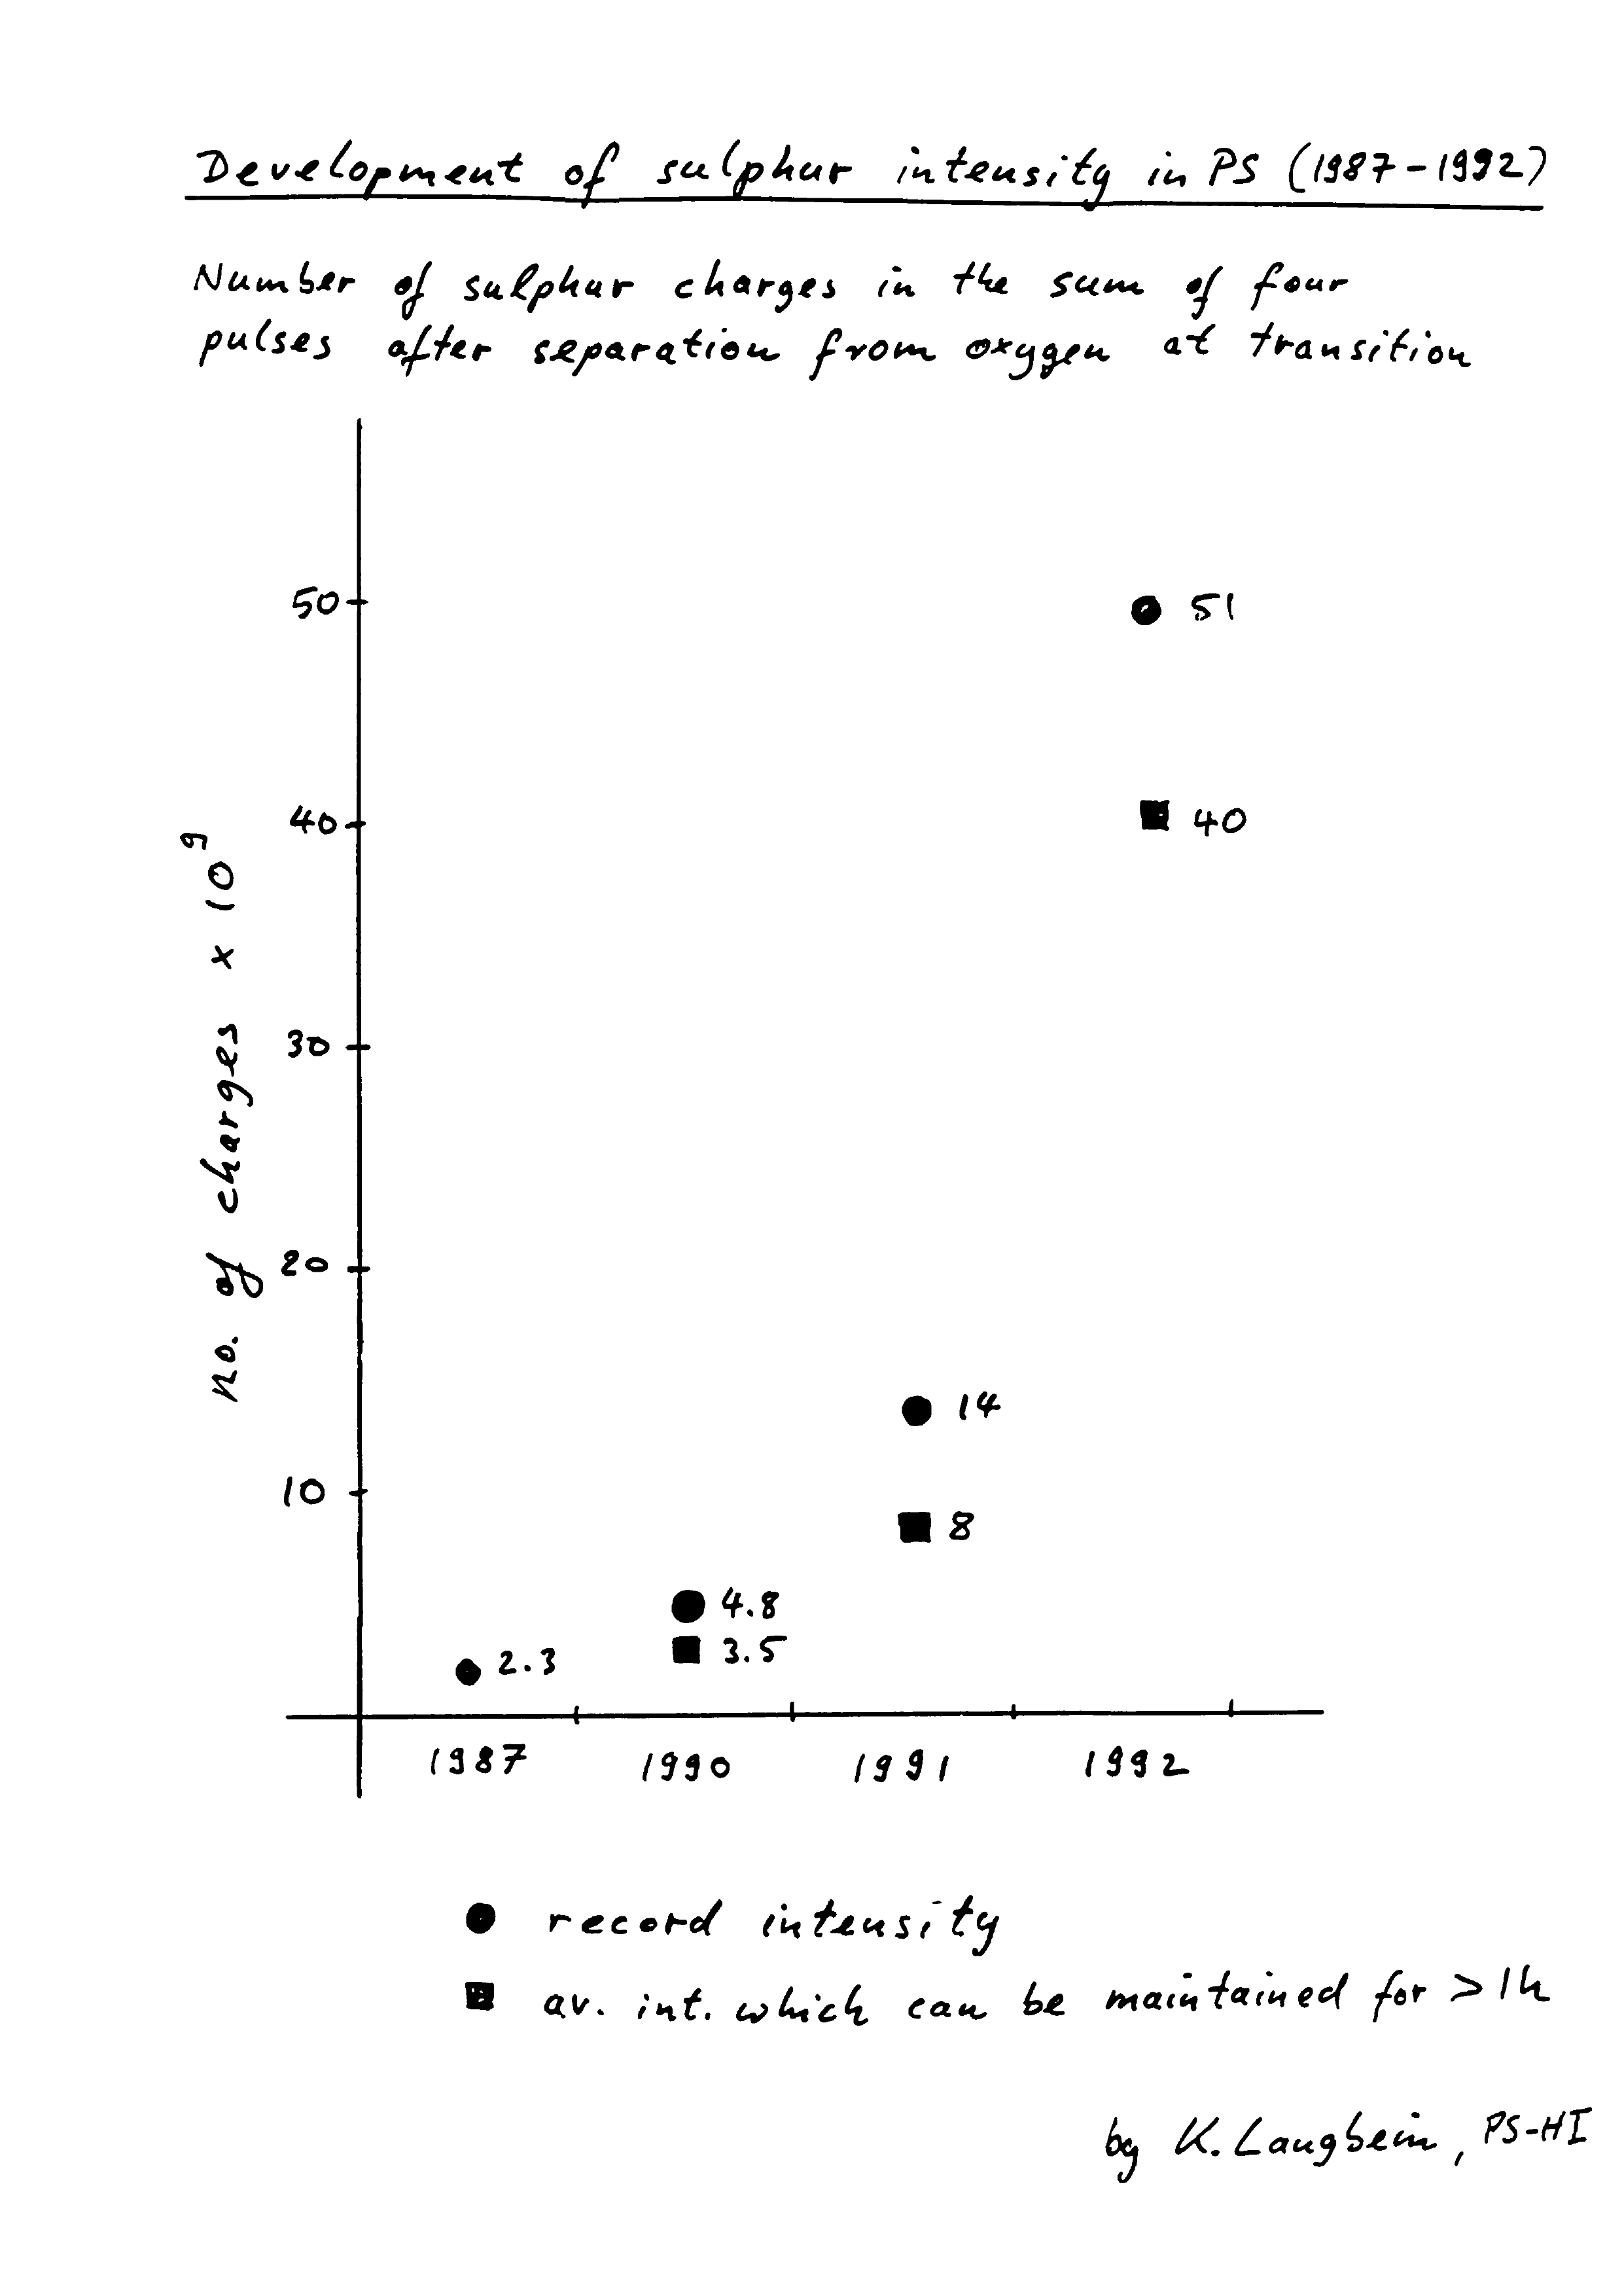 Development of sulphur intensity in PS (1987-1992)
Number of sulphur charges in the sum of four
pulses after separation from oxygen at transition
no. of charges x 10⁹
50
40
30
20
10
51
40
14
8
4.8
3.5
2.3
1987 1990 1991 1992
record intensity
av. int. which can be maintained for >1h
by K. Langbein, PS-HI